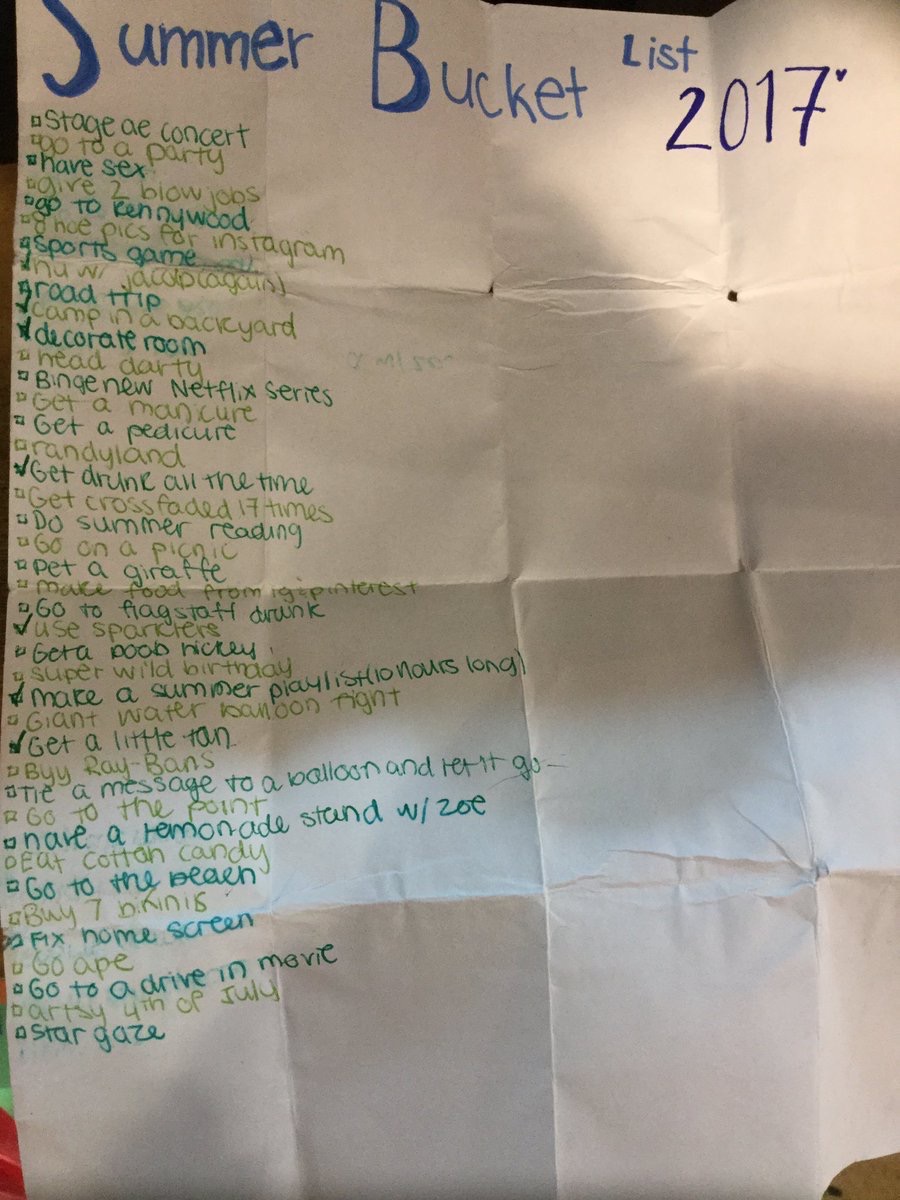 Summer Bucket List
2017
Stage ae concert
go to a party
have sex
give 2 blowjobs
go to Kennywood
8 hoe pics for instagram
sports game
hu w/ jacob(again)
road trip
camp in a backyard
decorate room
head darty
Binge new Netflix series
Get a manicure
Get a pedicure
randyland
Get drunk all the time
Get crossfaded 17 times
Do summer reading
Go on a picnic
Pet a giraffe
make food from ig+pinterest
Go to flagstaff drunk
use sparklers
Get a boob hickey
super wild birthday
make a summer playlist(10 hours long)
Giant water balloon fight
Get a little tan
Byy Ray-Bans
Tie a message to a balloon and let it go
Go to the point
have a lemonade stand w/ zoe
Eat cotton candy
Go to the beach
Buy 7 bikinis
Fix home screen
Go ape
Go to a drive in movie
artsy 4th of July
star gaze